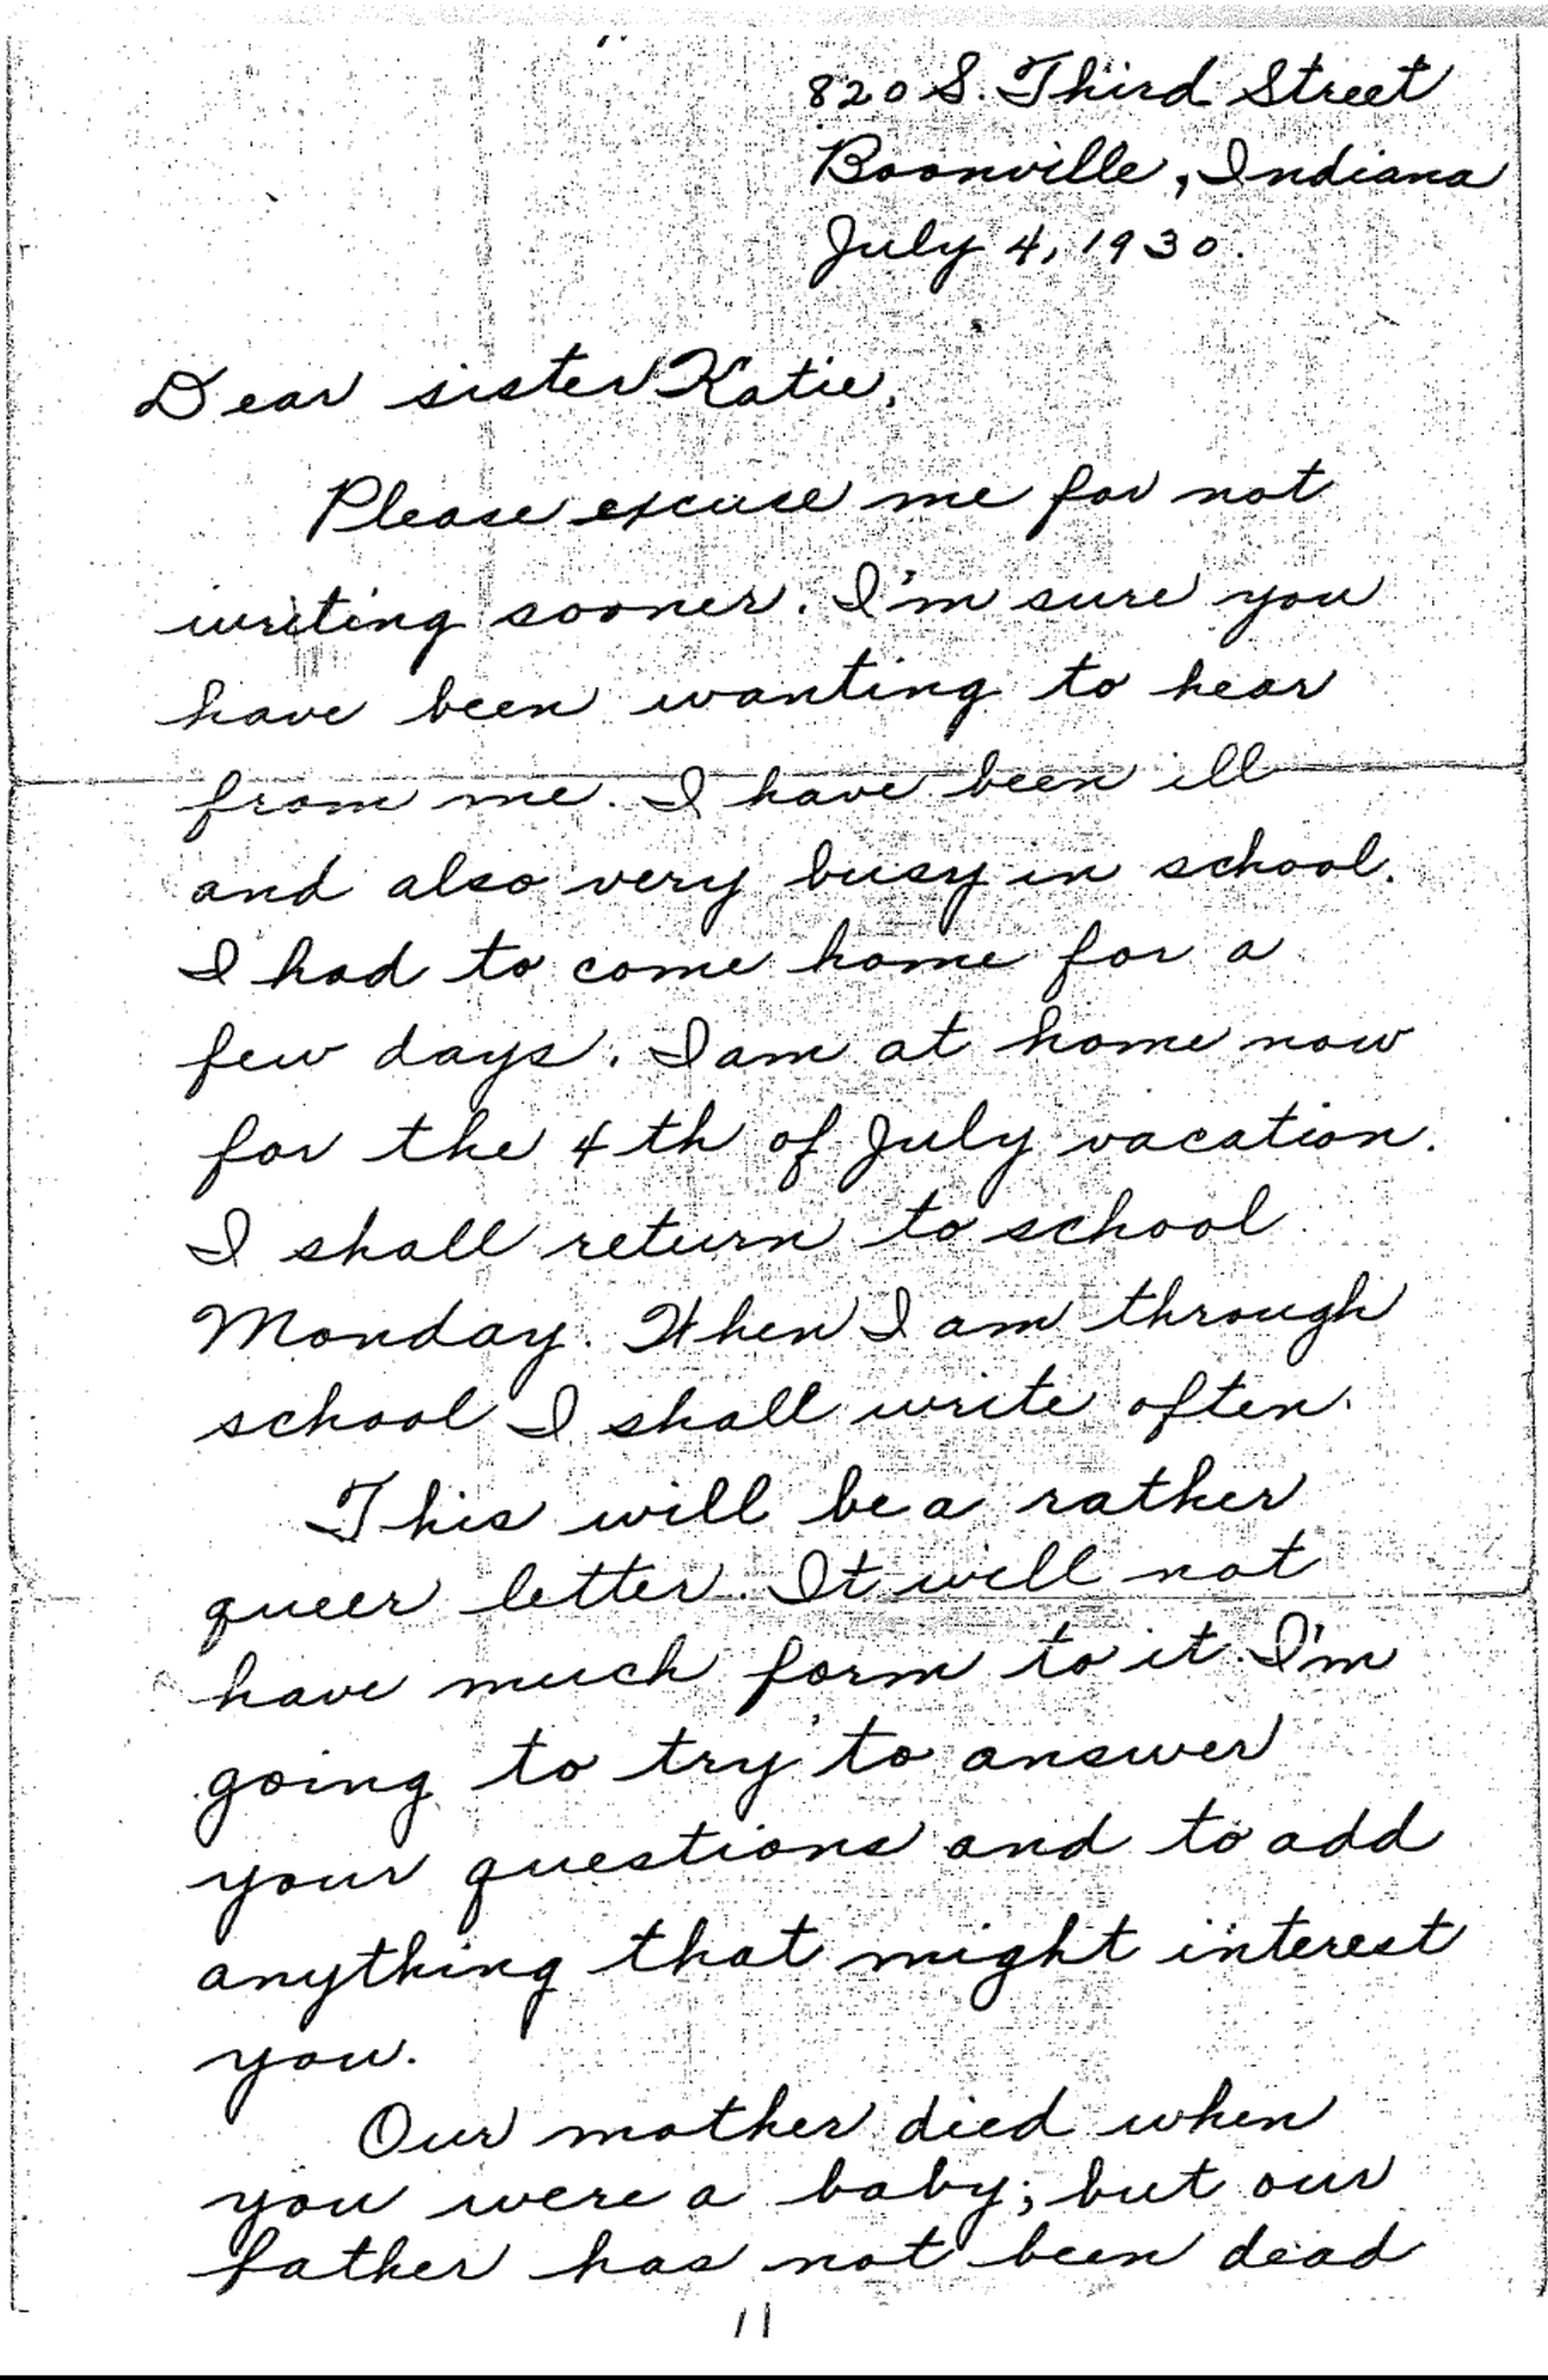 820 S. Third Street
Boonville, Indiana
July 4, 1930.
Dear sister Katie,
Please excuse me for not
writing sooner. I'm sure you
have been wanting to hear
from me. I have been ill
and also very busy in school.
I had to come home for a
few days. I am at home now
for the 4th of July vacation.
I shall return to school
Monday. When I am through
school I shall write often.
This will be a rather
queer letter. It will not
have much form to it. I'm
going to try to answer
your questions and to add
anything that might interest
you.
Our mother died when
you were a baby; but our
father has not been dead
11